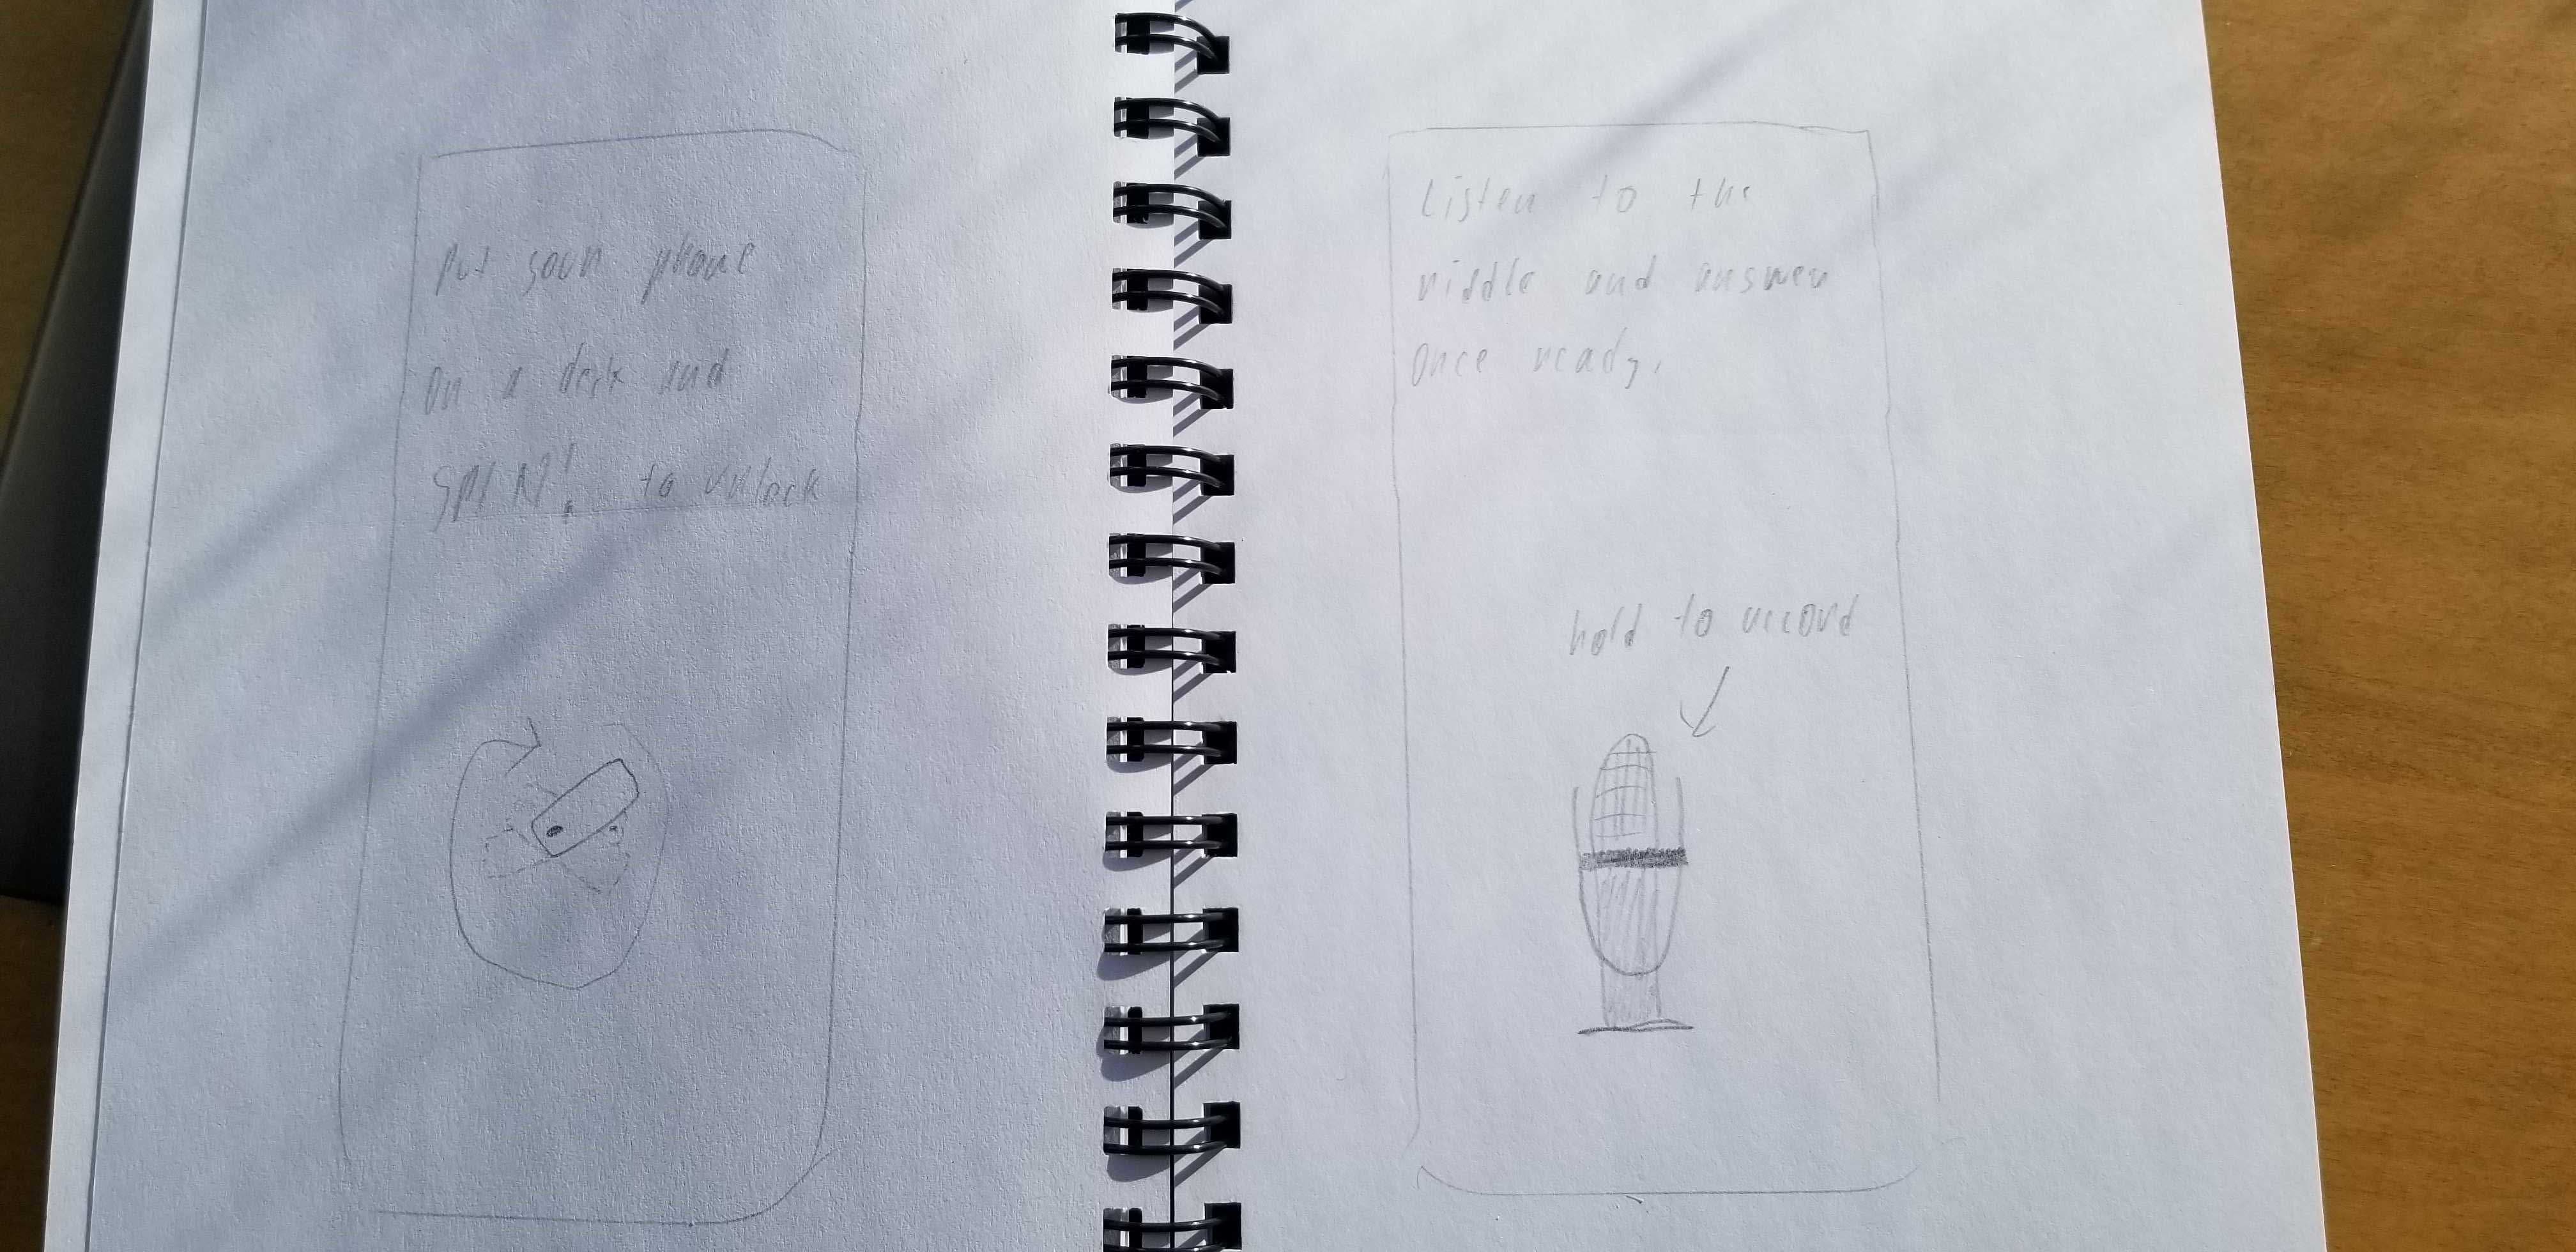 Put your phone
on a desk and
SPIN! to unlock
Listen to the
riddle and answer
once ready.
hold to record